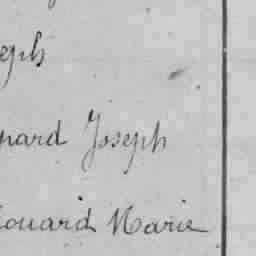 eph
nard Joseph
douard Marie